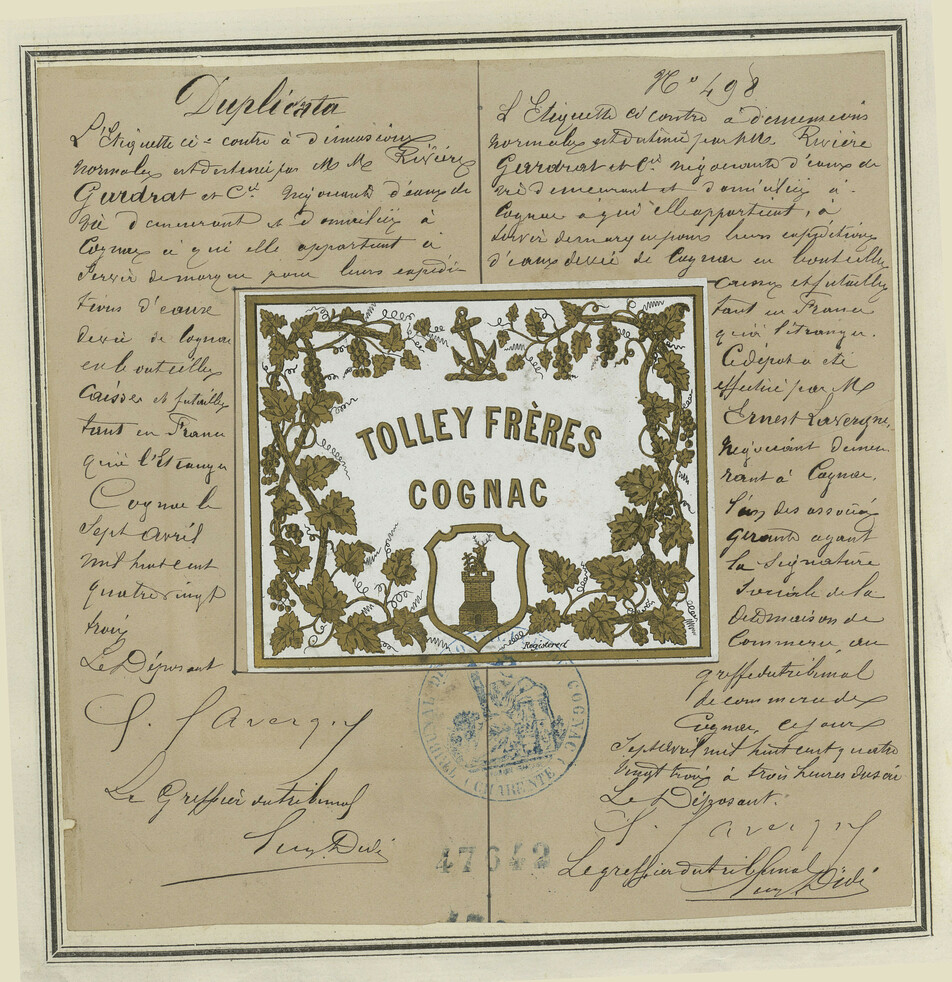 Duplicata
L'Etiquette ci-contre à dimensions
normales est destinée par MM Rivière
Gardrat et Cie négociants d'eaux de
vie demeurant et domiciliés à
Cognac à qui elle appartient à
Servir de marque pour leurs expédi-
tions d'eaux
de vie de Cognac
en bouteilles
Caisses et futailles
tant en France
qu'à l'Etranger
Cognac le
Sept Avril
mil huit cent
quatre vingt
trois
Le Déposant
E. Lavergne
Le Greffier du tribunal
No 498
L'Etiquette ci contre à dimensions
normales est destinée par MM. Rivière
Gardrat et Cie négociants d'eaux de
vie demeurant et domiciliés à
Cognac à qui elle appartient, à
servir de marque pour leurs expéditions
d'eaux de vie de Cognac en bouteilles
caisses et futailles
tant en France
qu'à l'Etranger.
Ce dépôt a été
effectué par M
Ernest Lavergne,
négociant demeu-
rant à Cognac,
l'un des associés
gérants ayant
la signature
sociale de la
dite maison de
Commerce, au
greffe du tribunal
de commerce de
Cognac, ce jour
Sept avril mil huit cent quatre
vingt trois à trois heures du soir
Le Déposant.
E. Lavergne
Le greffier du tribunal
TOLLEY FRÈRES
COGNAC
Registered
TRIBUNAL DE COGNAC (CHARENTE)
47642